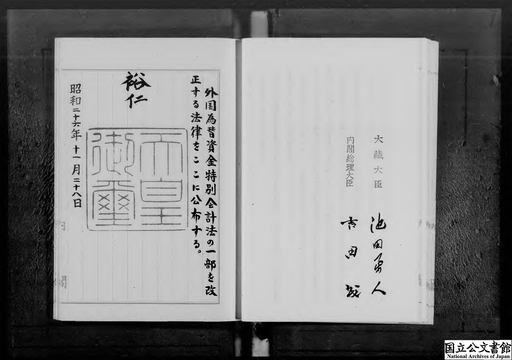 外国為替資金特別会計法の一部を改
正する法律をここに公布する。
裕仁
天皇
御璽
昭和二十六年十一月二十八日
大蔵大臣 池田勇人
内閣総理大臣 吉田茂
国立公文書館
National Archives of Japan